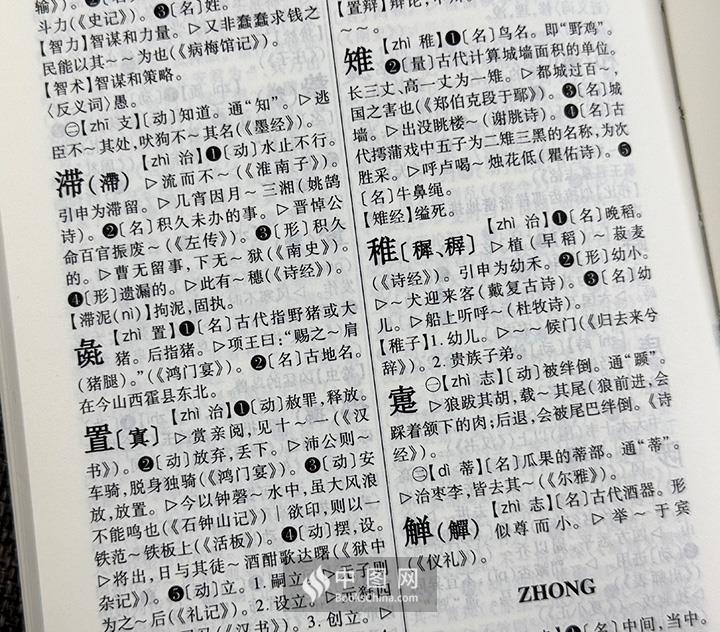 输)》。❷〔名〕
❸〔名〕姓。
斗力(《史记》)。
【智力】智谋和力量。▷又非蠢蠢求钱之
民能以其~~为也(《病梅馆记》)。
【智术】智谋和策略。
〈反义词〉愚。
㊁【zhī 支】〔动〕知道。通“知”。▷逃
臣不~其处,吠狗不~其名(《墨经》)。
滞(滯)【zhì 治】❶〔动〕水止不行。
▷流而不~(《淮南子》)。
引申为滞留。▷几宵因月~三湘(姚鹄
诗)。❷〔名〕积久未办的事。▷晋悼公
命百官振废~(《左传》)。❸〔形〕积久
的。▷曹无留事,下无~狱(《南史》)。
❹〔形〕遗漏的。▷此有~穗(《诗经》)。
【滞泥(nì)】拘泥,固执。
彘【zhì 置】❶〔名〕古代指野猪或大
猪。后指猪。▷项王曰:“赐之~肩
(猪腿)。”(《鸿门宴》)。❷〔名〕古地名。
在今山西霍县东北。
置〔寘〕【zhì 治】❶〔动〕赦罪,释放。
▷赏亲阅,见十~一(《汉
书》)。❷〔动〕放弃,丢下。▷沛公则~
车骑,脱身独骑(《鸿门宴》)。❸〔动〕安
放,放置。▷今以钟磬~水中,虽大风浪
不能鸣也(《石钟山记》)|欲印,则以一
铁范~铁板上(《活板》)。❹〔动〕摆,设。
▷将出,日与其徒~酒酣歌达曙(《狱中
杂记》)。❺〔动〕立。1.嗣立。▷
为之~后(《礼记》)。2.设立。▷
(《汉书》)。3.创立。▷
【置辩】辩论,
雉【zhì 稚】❶〔名〕鸟名。即“野鸡”。
❷〔量〕古代计算城墙面积的单位。
长三丈、高一丈为一雉。▷都城过百~,
国之害也(《郑伯克段于鄢》)。❸〔名〕城
墙。▷出没眺楼~(谢朓诗)。❹〔名〕古
代摴蒲戏中五子为二雉三黑的名称,为次
胜采。▷呼卢喝~烛花低(瞿佑诗)。❺
〔名〕牛鼻绳。
【雉经】缢死。
稚〔穉、稺〕【zhì 治】❶〔名〕晚稻。
▷植(早稻)~菽麦
(《诗经》)。引申为幼禾。❷〔形〕幼小。
▷~犬迎来客(戴复古诗)。❸〔名〕幼
儿。▷船上听呼~(杜牧诗)。
【稚子】1.幼儿。▷~~候门(《归去来兮
辞》)。2.贵族子弟。
疐㊀【zhì 志】〔动〕被绊倒。通“踬”。
▷狼跋其胡,载~其尾(狼前进,会
踩着颌下的肉;后退,会被尾巴绊倒。《诗
经》)。
㊁【dì 蒂】〔名〕瓜果的蒂部。通“蒂”。
▷治枣李,皆去其~(《尔雅》)。
觯(觶)【zhì 志】〔名〕古代酒器。形
似尊而小。▷举~于宾
(《仪礼》)。
ZHONG
❶〔名〕中间,当中。
中图网
BooksChina.com